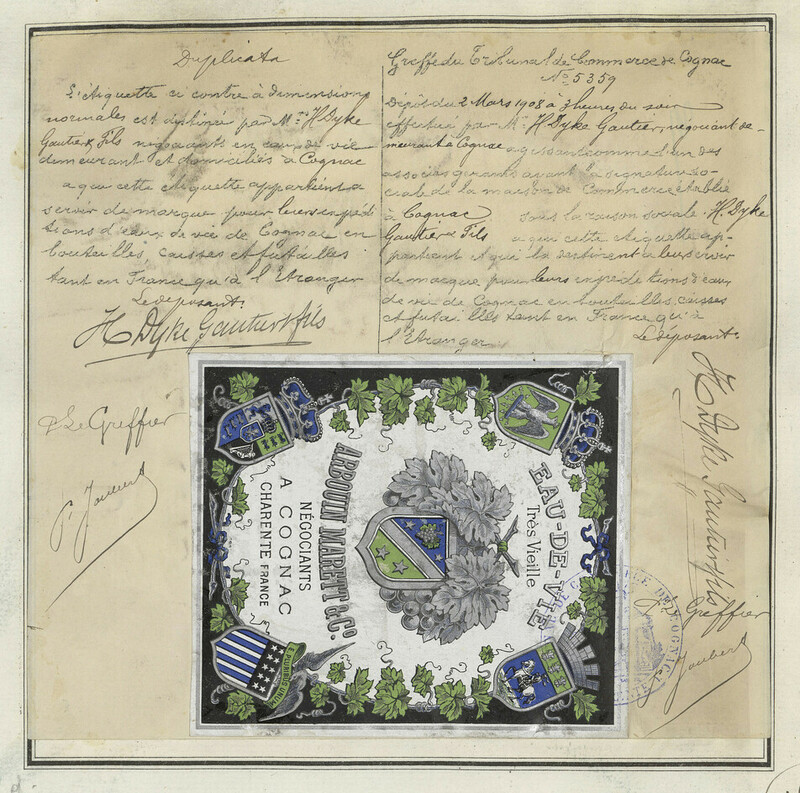 Duplicata
L'étiquette ci contre à dimensions
normales est destinée par Mrs H. Dyke
Gautier & Fils négociants en eau de vie
demeurant et domiciliés à Cognac
a qui cette étiquette appartient a
servir de marque pour leurs expédi
tions d'eaux de vie de Cognac en
bouteilles, caisses et futailles
tant en France qu'à l'Etranger
Le déposant.
H Dyke Gautier & fils
Le Greffier
P. Joubert
Greffe du Tribunal de Commerce de Cognac
No 5359
Dépôt du 2 Mars 1908 à 3 heures du soir
effectué par Mr H. Dyke Gautier, négociant de-
meurant à Cognac agissant comme l'un des
associés gérants ayant la signature so-
ciale de la maison de Commerce établie
à Cognac sous la raison sociale H. Dyke
Gautier & Fils a qui cette étiquette ap-
partient et qui la destinent a leur servir
de marque pour leurs expéditions d'eaux
de vie de Cognac en bouteilles, caisses
et futailles tant en France qu'à
l'Etranger Le déposant.
H Dyke Gautier & fils
Greffier
Joubert
EAU-DE-VIE
Très Vieille
ARBOUIN MARETT & Co.
NÉGOCIANTS
A COGNAC
CHARENTE FRANCE
E PLURIBUS UNUM